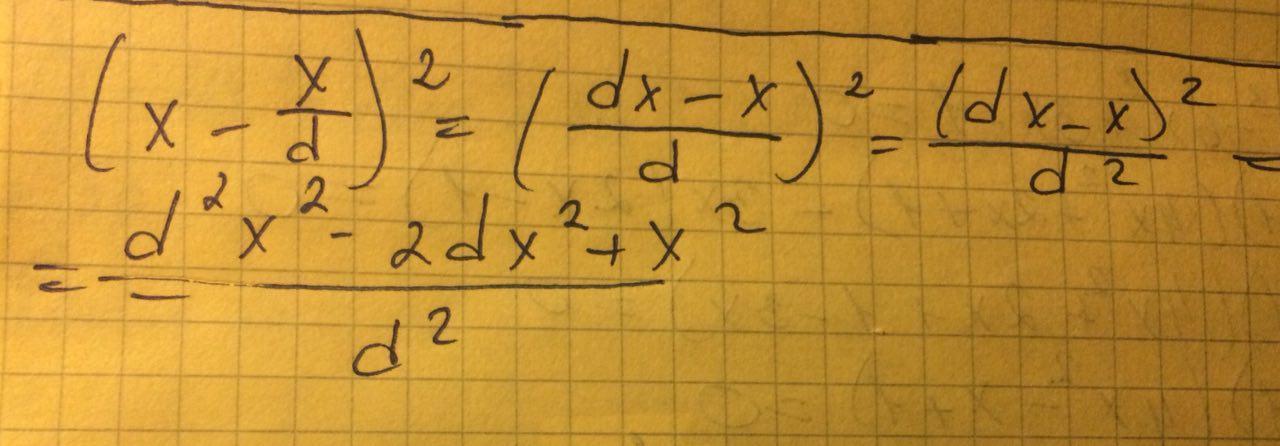 (x - x/d)² = ((dx - x)/d)² = (dx - x)²/d² =
= (d²x² - 2dx² + x²)/d²